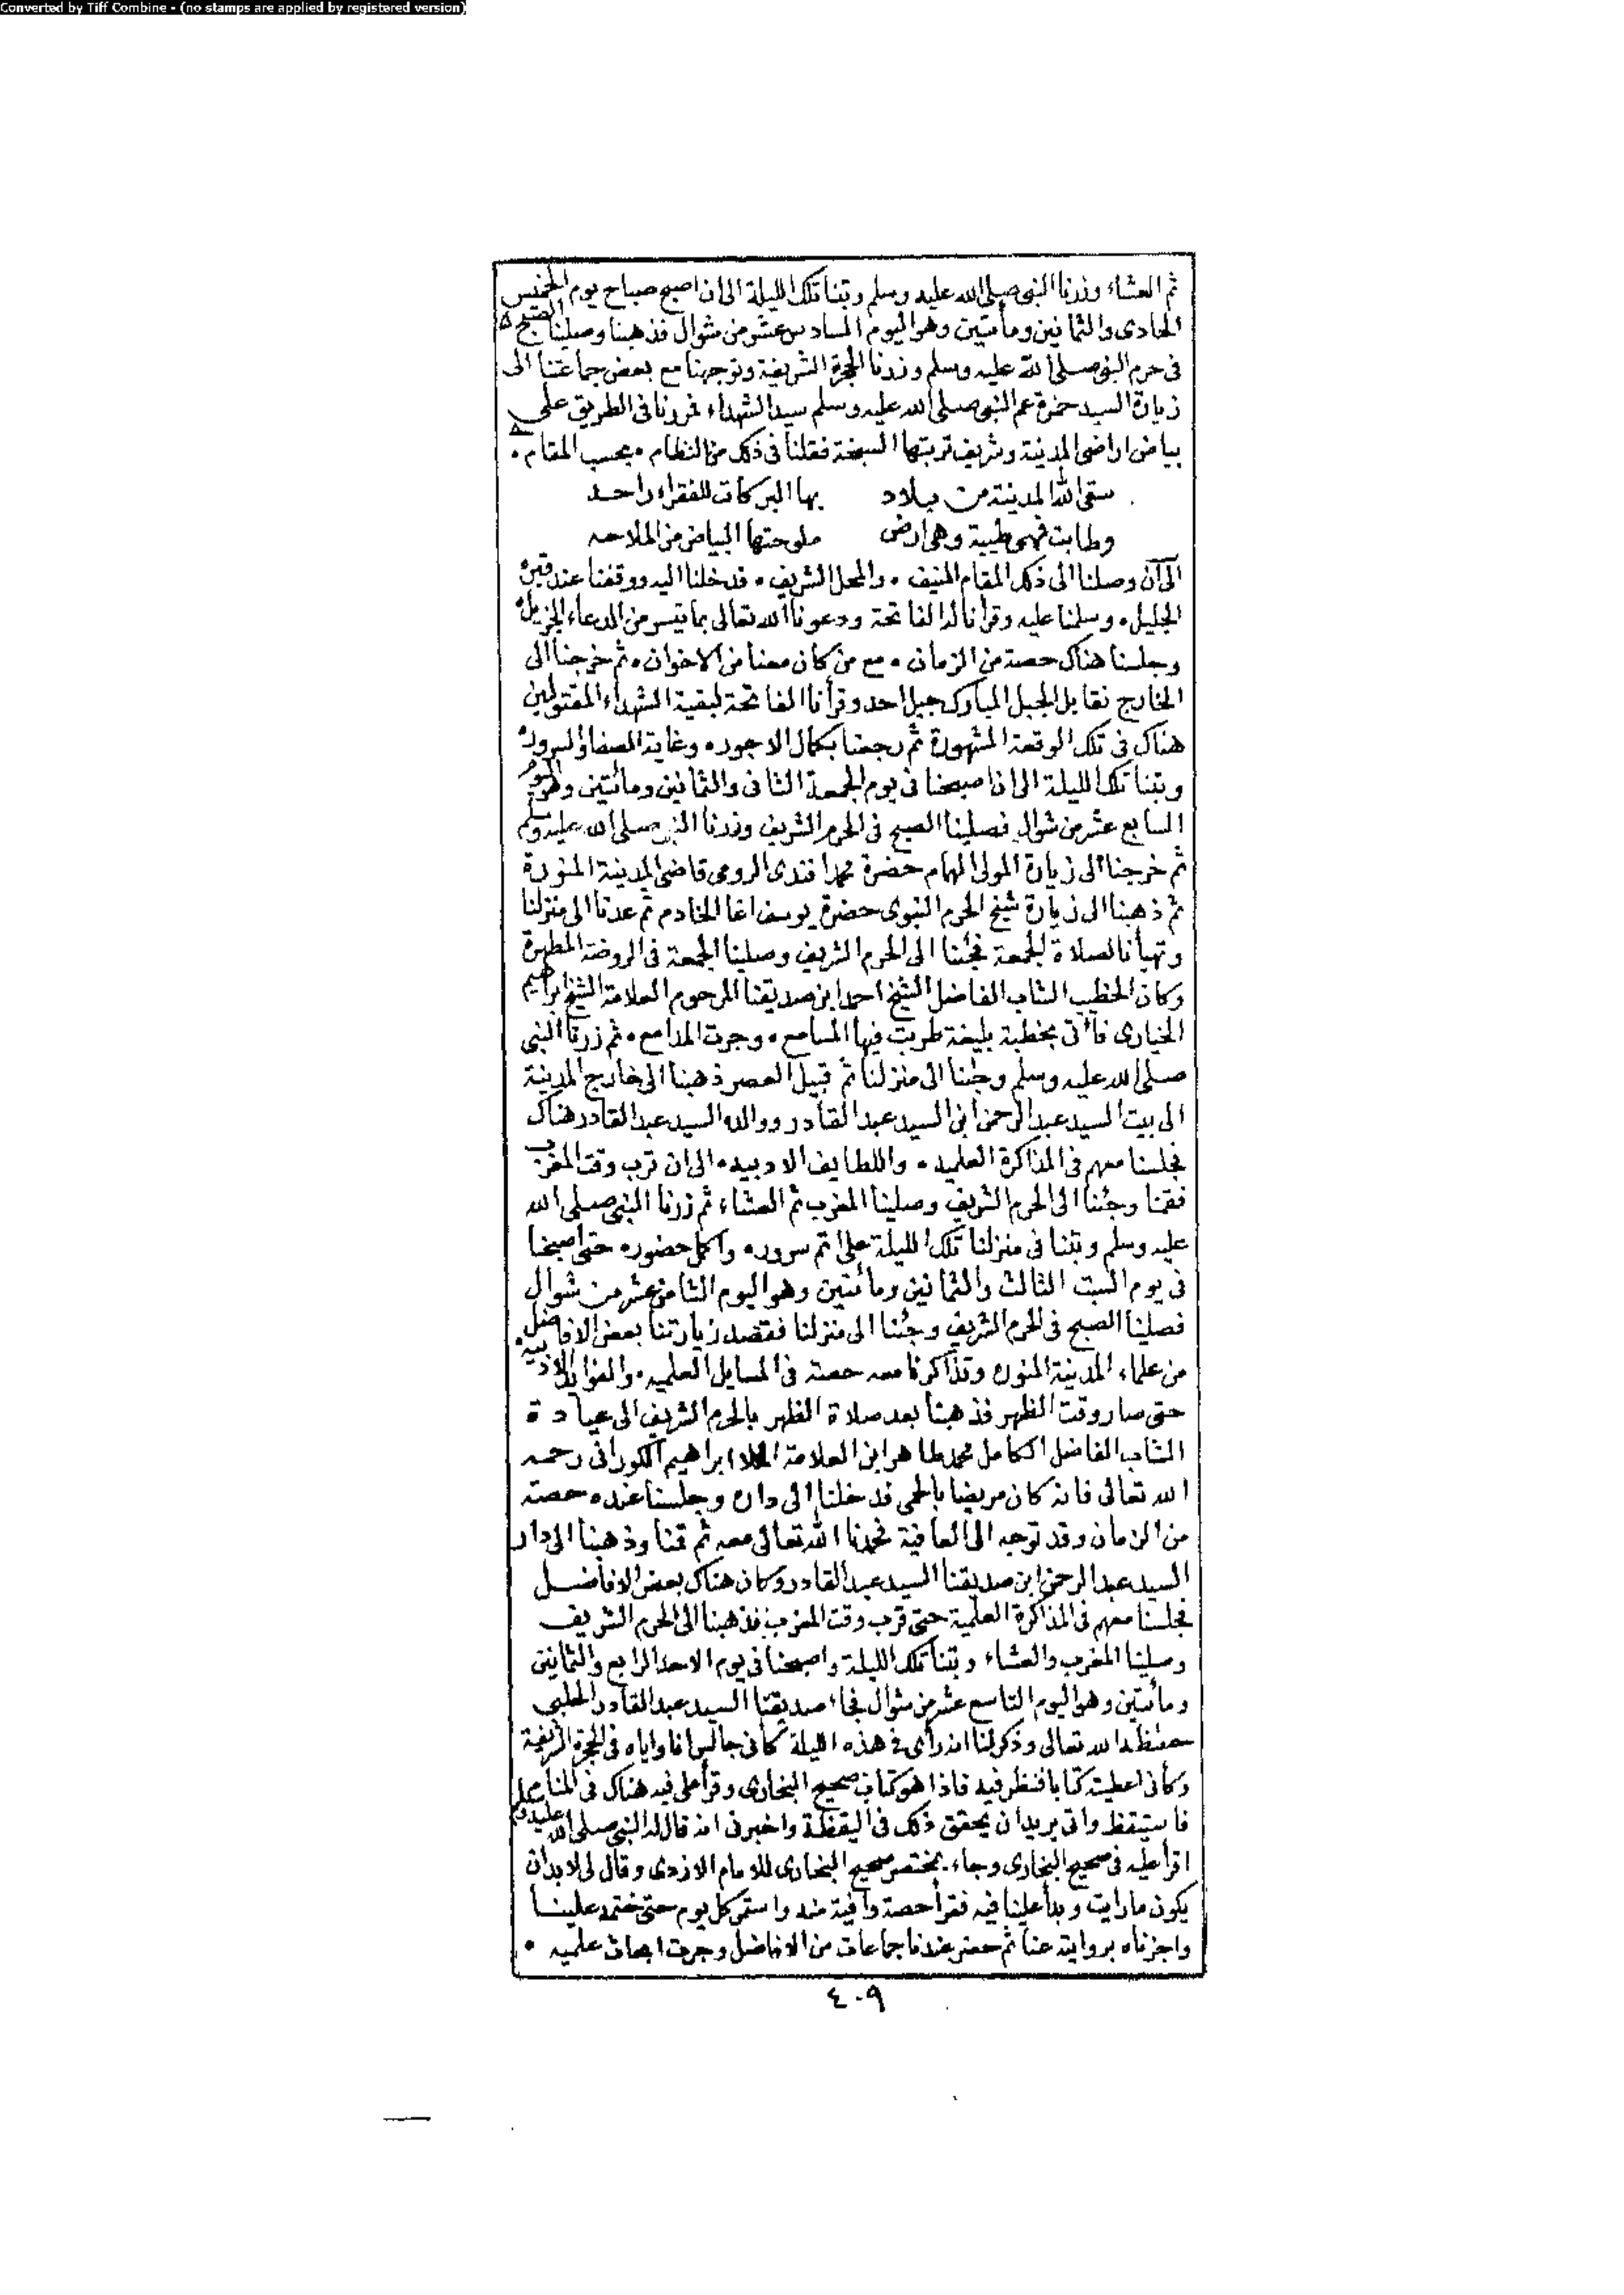 Converted by Tiff Combine - (no stamps are applied by registered version)
ثم العشاء وزرنا النبي صلى الله عليه وسلم وبتنا تلك الليلة الى ان اصبح صباح يوم الخميس
الحادى والثمانين ومأتين وهو اليوم السادس عشر من شوال فذهبنا وصلينا الصبح
فى حرم النبي صلى الله عليه وسلم وزرنا الحجرة الشريفة وتوجهنا مع بعض جماعتنا الى
زيارة السيد حمزة عم النبي صلى الله عليه وسلم سيد الشهداء فمررنا فى الطريق على
بياض اراضى المدينة وشريف تربتها السبخة فقلنا فى ذلك من النظام • بحسب المقام •
سقى الله المدينة من بلاد بها البركات للفقراء راحه
وطابت فهي طيبة وهي ارض ملوحتها البياض من الملاحه
الى آن وصلنا الى ذلك المقام المنيف • والمحل الشريف • فدخلنا اليه ووقفنا عند قبره
الجليل • وسلمنا عليه وقرأنا له الفاتحة ودعونا الله تعالى بما تيسر من الدعاء الجزيل •
وجلسنا هناك حصة من الزمان • مع من كان معنا من الاخوان • ثم خرجنا الى
الخارج نقابل الجبل المبارك جبل احد وقرأنا الفاتحة لبقية الشهداء المقتولين
هناك فى تلك الوقعة المشهورة ثم رجعنا بكمال الاجور • وغاية الصفا والسرور •
وبتنا تلك الليلة الى ان اصبحنا فى يوم الجمعة الثانى والثمانين ومأتين وهو اليوم
السابع عشر من شوال فصلينا الصبح فى الحرم الشريف وزرنا النبي صلى الله عليه وسلم
ثم خرجنا الى زيارة المولى الهمام حضرة محمد افندى الرومى قاضى المدينة المنورة
ثم ذهبنا الى زيارة شيخ الحرم النبوى حضرة يوسف اغا الخادم ثم عدنا الى منزلنا
وتهيأنا لصلاة الجمعة فجئنا الى الحرم الشريف وصلينا الجمعة فى الروضة المطهرة
وكان الخطيب الشاب الفاضل الشيخ احمد ابن صديقنا المرحوم العلامة الشيخ ابراهيم
الخيارى فأتى بخطبة بليغة طربت فيها المسامع • وجرت المدامع • ثم زرنا النبي
صلى الله عليه وسلم وجئنا الى منزلنا ثم قبيل العصر ذهبنا الى خارج المدينة
الى بيت السيد عبد الرحمن ابن السيد عبد القادر ووالده السيد عبد القادر هناك
فجلسنا معهم فى المذاكرة العلميه • واللطايف الادبيه • الى ان قرب وقت المغرب
فقمنا وجئنا الى الحرم الشريف وصلينا المغرب ثم العشاء ثم زرنا النبي صلى الله
عليه وسلم وبتنا فى منزلنا تلك الليلة على اتم سرور • واكمل حضور • حتى اصبحنا
فى يوم السبت الثالث والثمانين ومأتين وهو اليوم الثامن عشر من شوال
فصلينا الصبح فى الحرم الشريف وجئنا الى منزلنا فقصد زيارتنا بعض الافاضل
من علماء المدينة المنوره وتذاكرنا معه حصة فى المسايل العلميه • والفوايد الادبيه •
حتى صار وقت الظهر فذهبنا بعد صلاة الظهر بالحرم الشريف الى عيادة
الشاب الفاضل الكامل محمد طاهر ابن العلامة الملا ابراهيم الكورانى رحمه
الله تعالى فانه كان مريضا بالحمى فدخلنا الى داره وجلسنا عنده حصة
من الزمان وقد توجه الى العافية فحمدنا الله تعالى معه ثم قمنا وذهبنا الى دار
السيد عبد الرحمن ابن صديقنا السيد عبد القادر وكان هناك بعض الافاضل
فجلسنا معهم فى المذاكرة العلمية حتى قرب وقت المغرب فذهبنا الى الحرم الشريف
وصلينا المغرب والعشاء وبتنا تلك الليلة واصبحنا فى يوم الاحد الرابع والثمانين
ومأتين وهو اليوم التاسع عشر من شوال فجاء صديقنا السيد عبد القادر الحلبى
حفظه الله تعالى وذكر لنا انه رأى فى هذه الليلة كأنى جالس انا واياه فى الحجرة الشريفة
وكأنى اعطيته كتابا فنظر فيه فاذا هو كتاب صحيح البخارى وقرأ علي فيه هناك فى المنام
فاستيقظ واتى يريد ان يحقق ذلك فى اليقظة واخبرنى انه قال له النبي صلى الله عليه وسلم
اقرأ عليه فى صحيح البخارى وجاء بمختصر صحيح البخارى للامام الازدى وقال لى لابد ان
يكون ما رايت وبدأ علينا فيه فقرأ حصة وافية منه واستمر كل يوم حتى ختمه علينا
واجزناه بروايته عنا ثم حضر عندنا جماعات من الافاضل وجرت ابحاث علميه •
٤٠٩